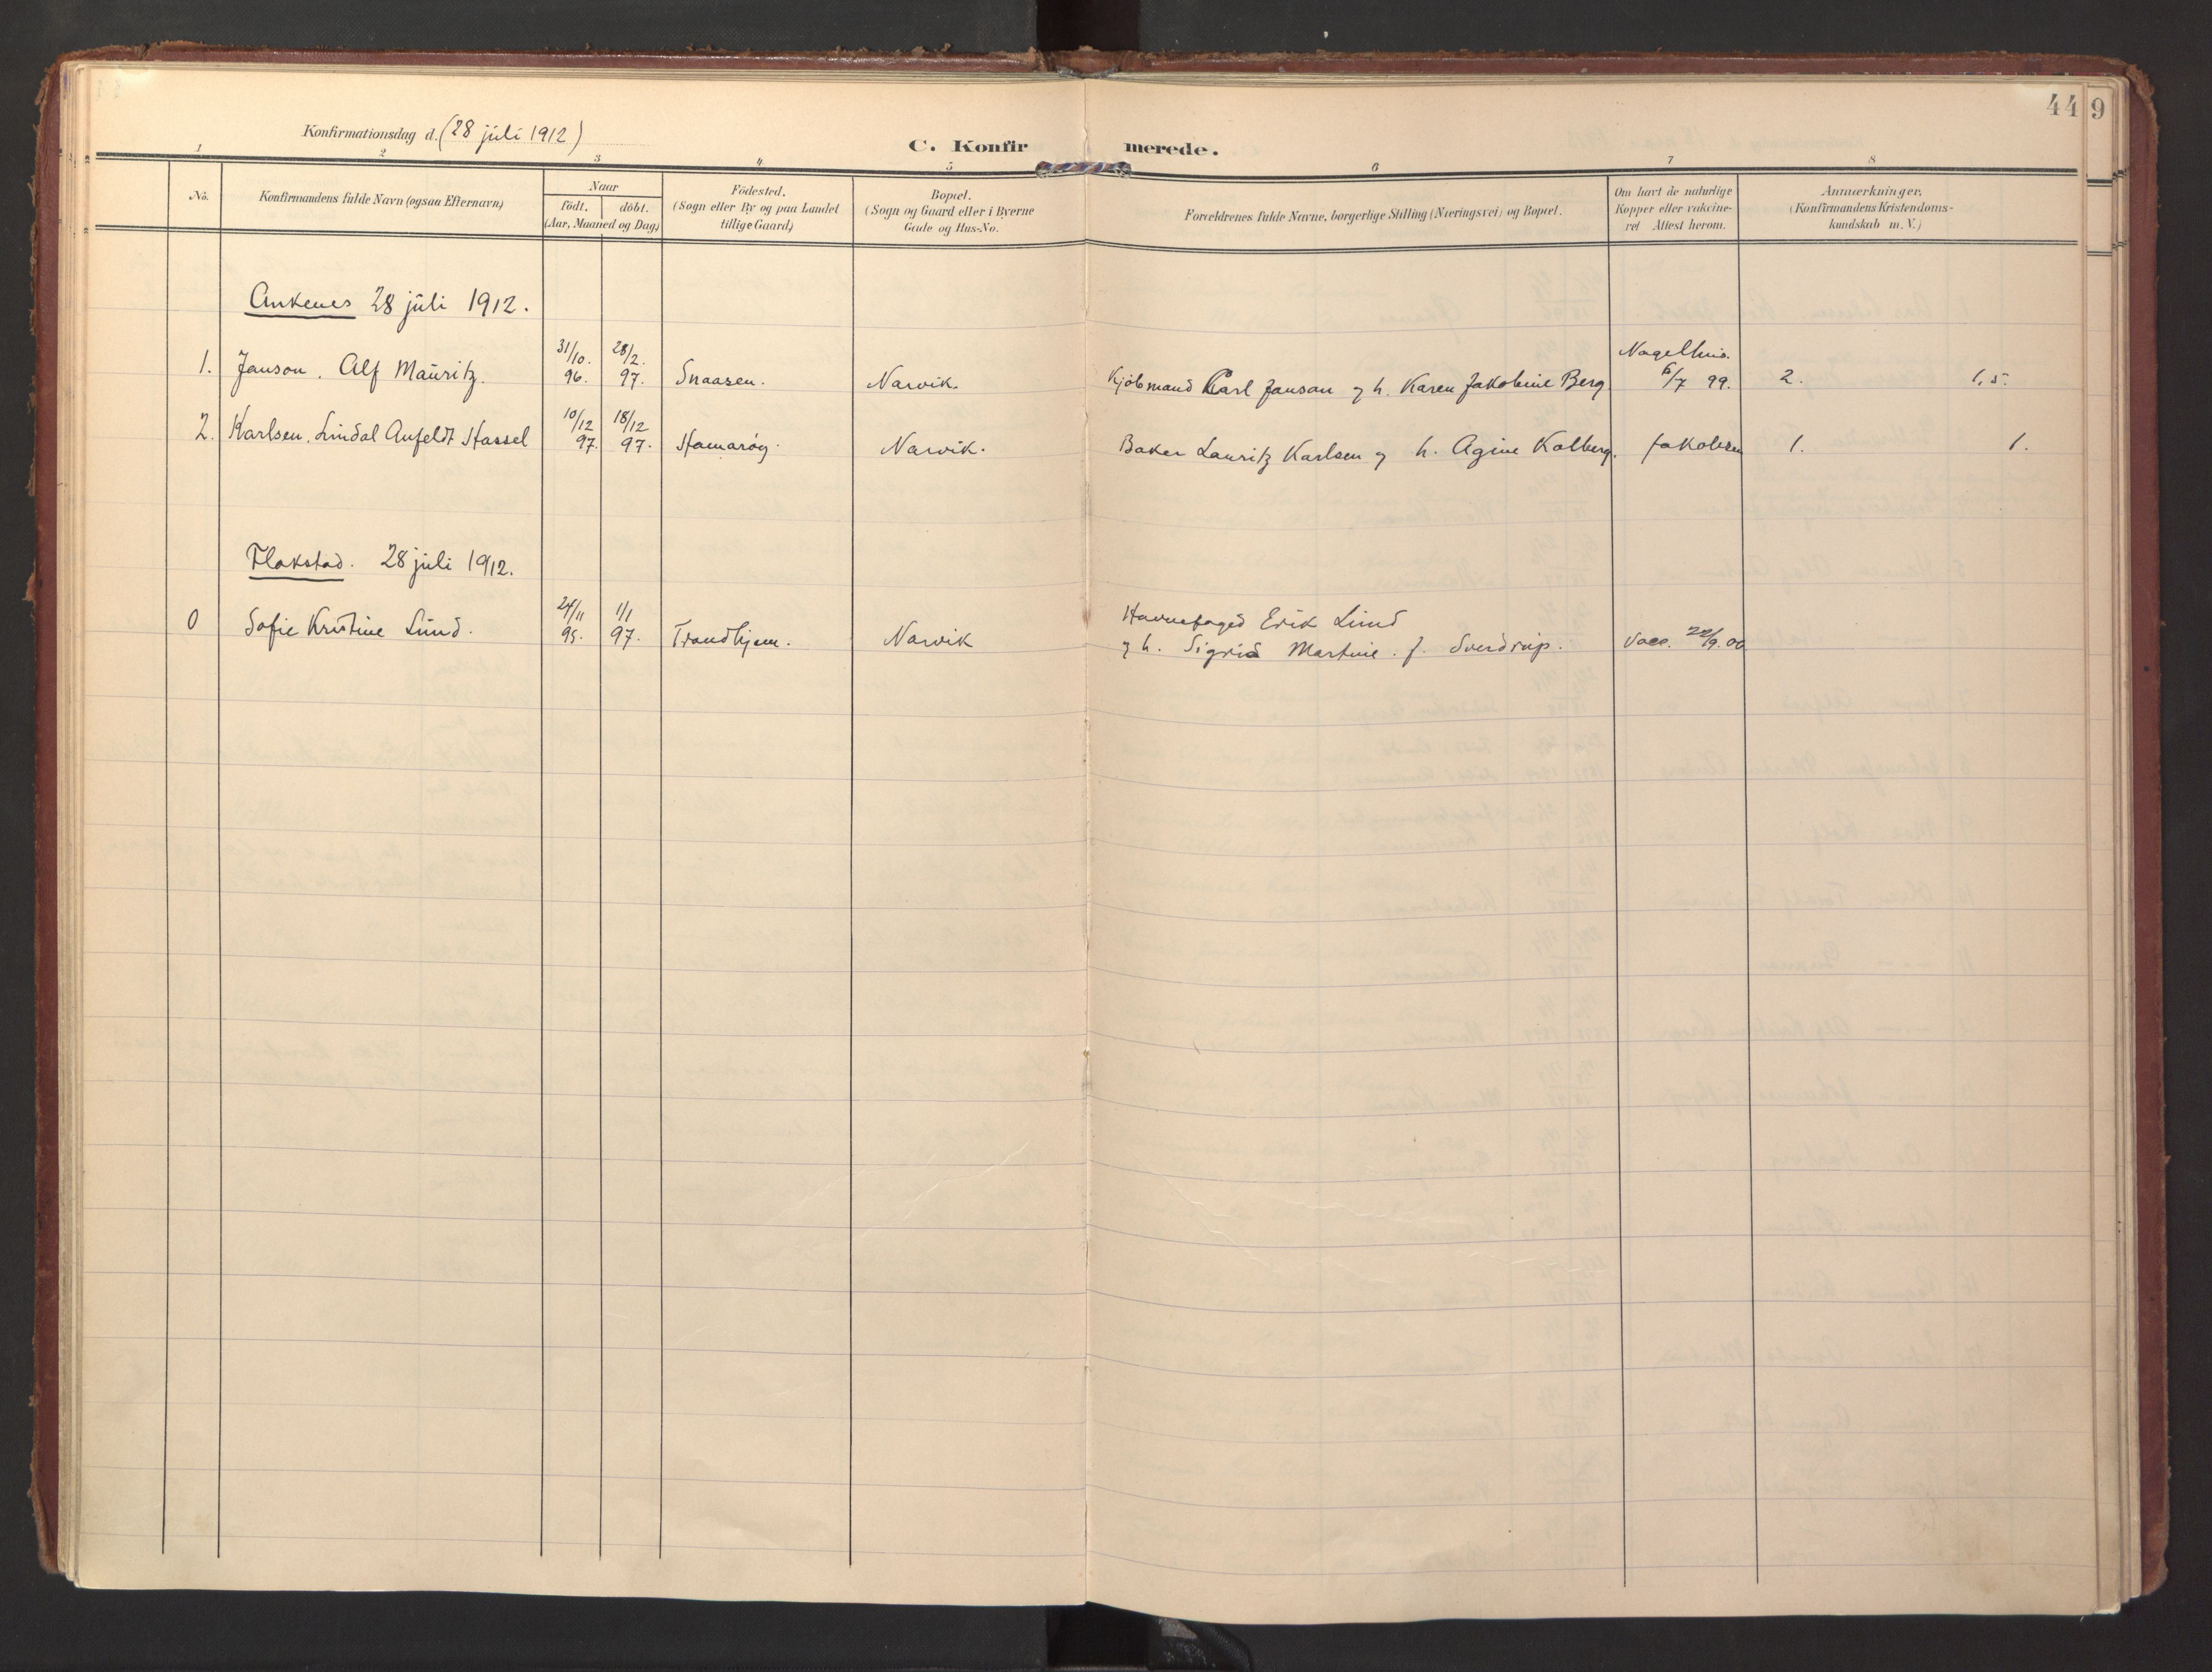 44
9
Konfirmationsdag d. (28 juli 1912)
C. Konfirmerede.
1 2 3 4 5 6 7 8
No.
Konfirmandens fulde Navn (ogsaa Efternavn)
Naar
födt. döbt.
(Aar, Maaned og Dag)
Födested.
(Sogn eller By og paa Landet
tillige Gaard)
Bopæl.
(Sogn og Gaard eller i Byerne
Gade og Hus-No.
Forældrenes fulde Navne, borgerlige Stilling (Næringsvei) og Bopæl.
Om havt de naturlige
Kopper eller vakcine-
ret Attest herom.
Anmærkninger.
(Konfirmandens Kristendoms-
kundskab m. V.)
Ankenes 28 juli 1912.
1. Janson. Alf Mauritz. 31/10. 96. 28/2. 97. Snaasen. Narvik. Kjöbmand Carl Janson og h. Karen Jakobine Berg Nagelhus. 6/7 99. 2. 1,5.
2. Karlsen. Lindal Anfeldt Hassel 10/12 97. 18/12 97. Hamarøy. Narvik. Baker Lauritz Karlsen og h. Agine Kolberg. Jakobsen 1. 1.
Flakstad. 28 juli 1912.
0 Sofie Kristine Lund. 24/11 95. 1/1 97. Trondhjem. Narvik Havnefoged Erik Lund
og h. Sigrid Martine. f. Sverdrup. Vacc. 22/9. 00